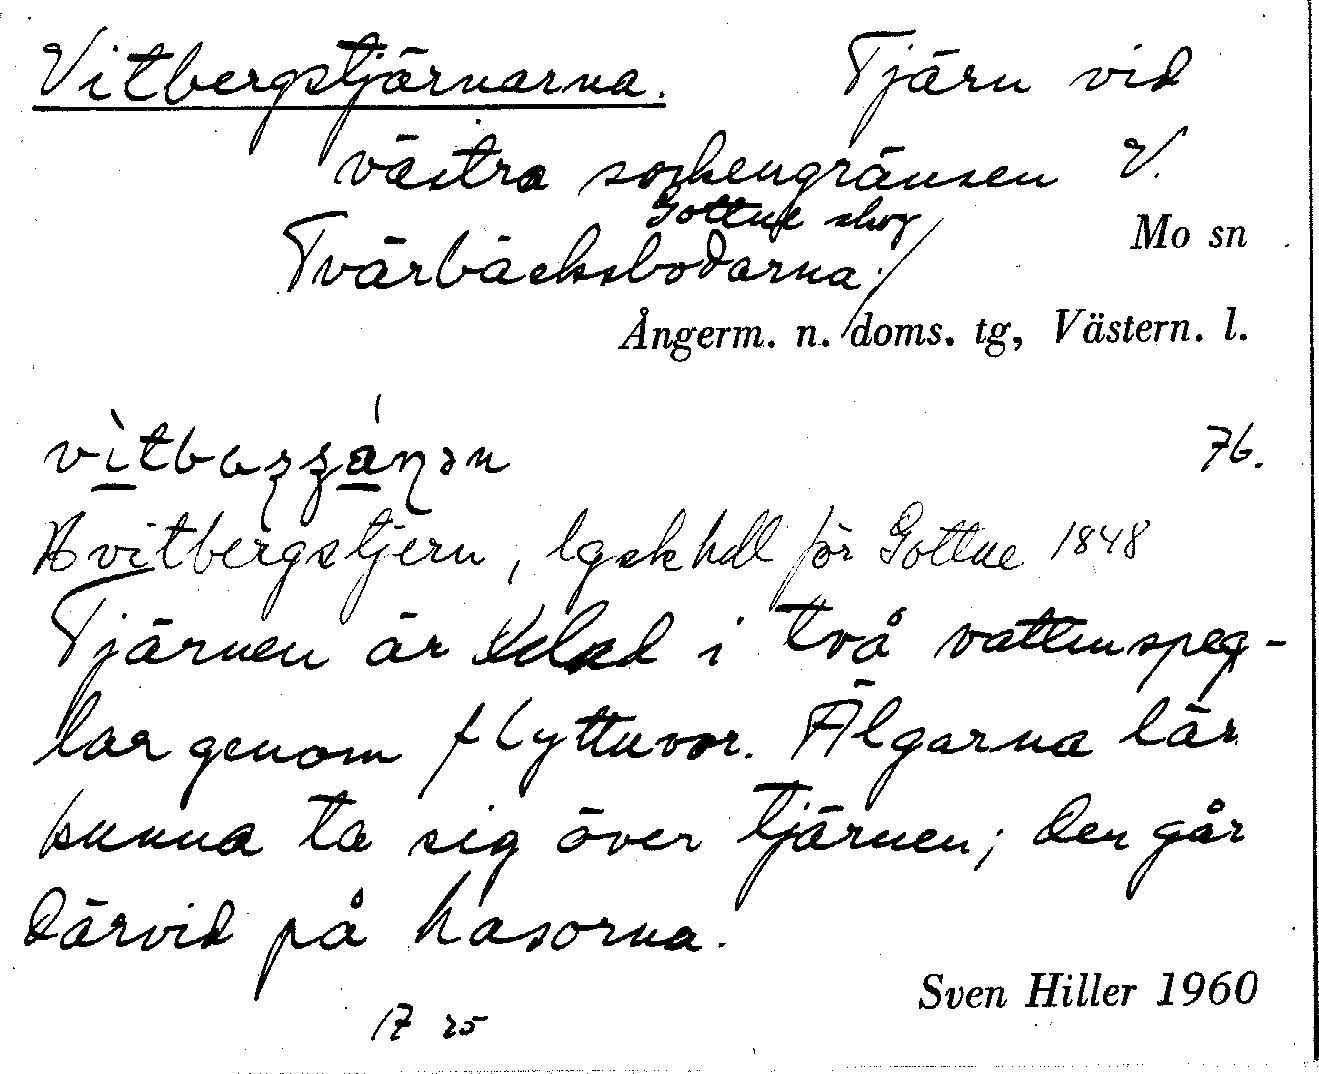 Vitbergstjärnarna. Tjärn vid
västra sockengränsen V.
Gottne skog
Tvärbäcksbodarna.
Mo sn
Ångerm. n. doms. tg, Västern. l.
76.
Hvitbergstjern, lgsk hdl för Gottne 1848
Tjärnen är delad i två vattenspeg-
lar genom flyttuvor. Älgarna lär
kunna ta sig över tjärnen; den går
därvid på hasorna.
Sven Hiller 1960